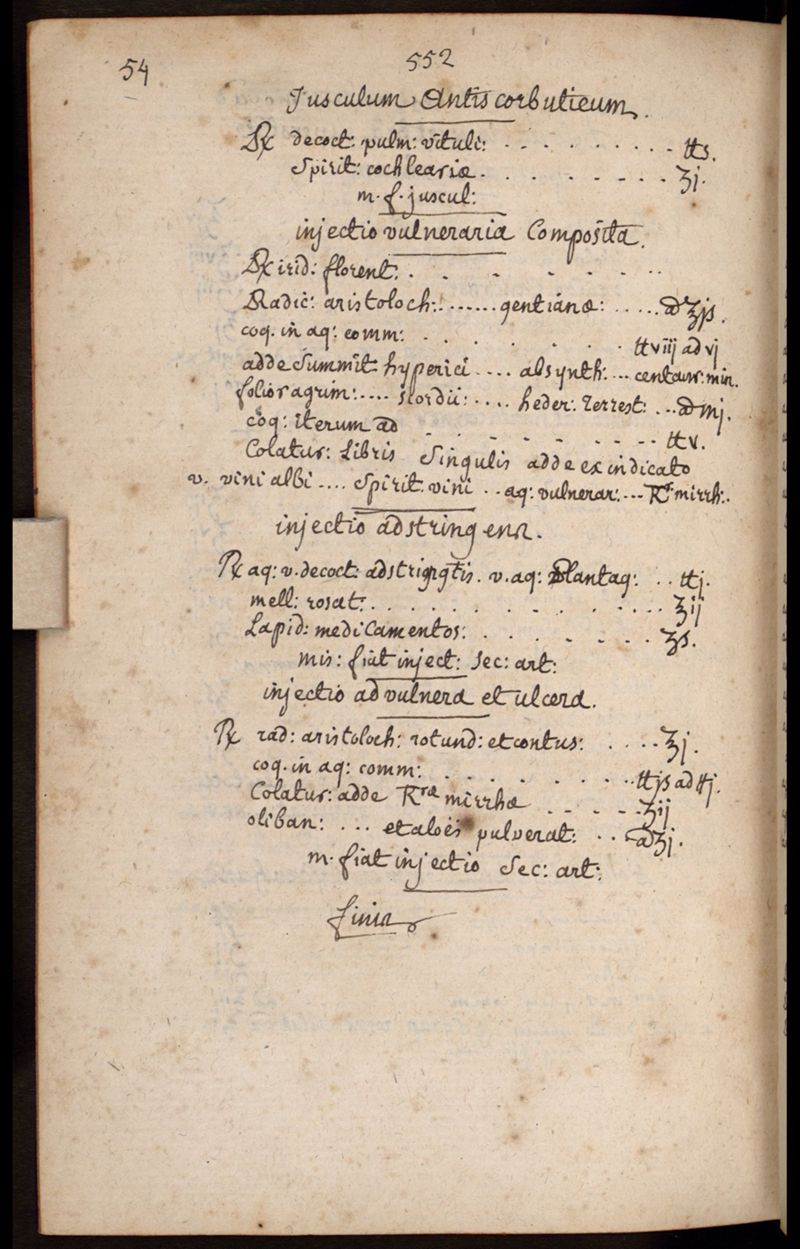 54
552
Jusculum Antiscorbuticum.
℞ decoct: pulm: vituli: . . . . . . . . . ℔s.
Spirit: cochleariæ . . . . . . . ʒj.
m. f. juscul:
injectio vulneraria Composita.
℞ irid: florent: . . . . . . . .
Radic: aristoloch: ...... gentianæ: ..... a ʒjs.
coq. in aq: comm: . . . . . . . ℔viij ad vj
adde Summit: hyperici .... absynth: ... centaur: min.
folior agrim: .... scordii: .... heder: terrest: ... a mj.
coq: iterum ad . . . . . . . ℔v.
Colatur: Libris Singulis adde ex indicato
v. vini albi .... Spirit: vini .. aq: vulnerar: ... Ræ mirrh:.
injectio adstringens.
℞ aq: v. decoct: adstringtis. v. aq: Plantag: . . ℔j.
mell: rosat: . . . . . . . . . . . . ʒij
Lapid: medicamentos: . . . . . . . ʒs.
mis: fiat inject: sec: art:
injectio ad vulnera et ulcera.
℞ rad: aristoloch: rotund: et contus: . . . . . ʒj.
coq. in aq: comm: . . . . . . . . ℔js ad ℔j.
Colatur: adde Rræ mirrhæ . . . . . ʒij
oliban: ... et aloës pulverat: . . a ʒj.
m. fiat injectio Sec: art:
finis